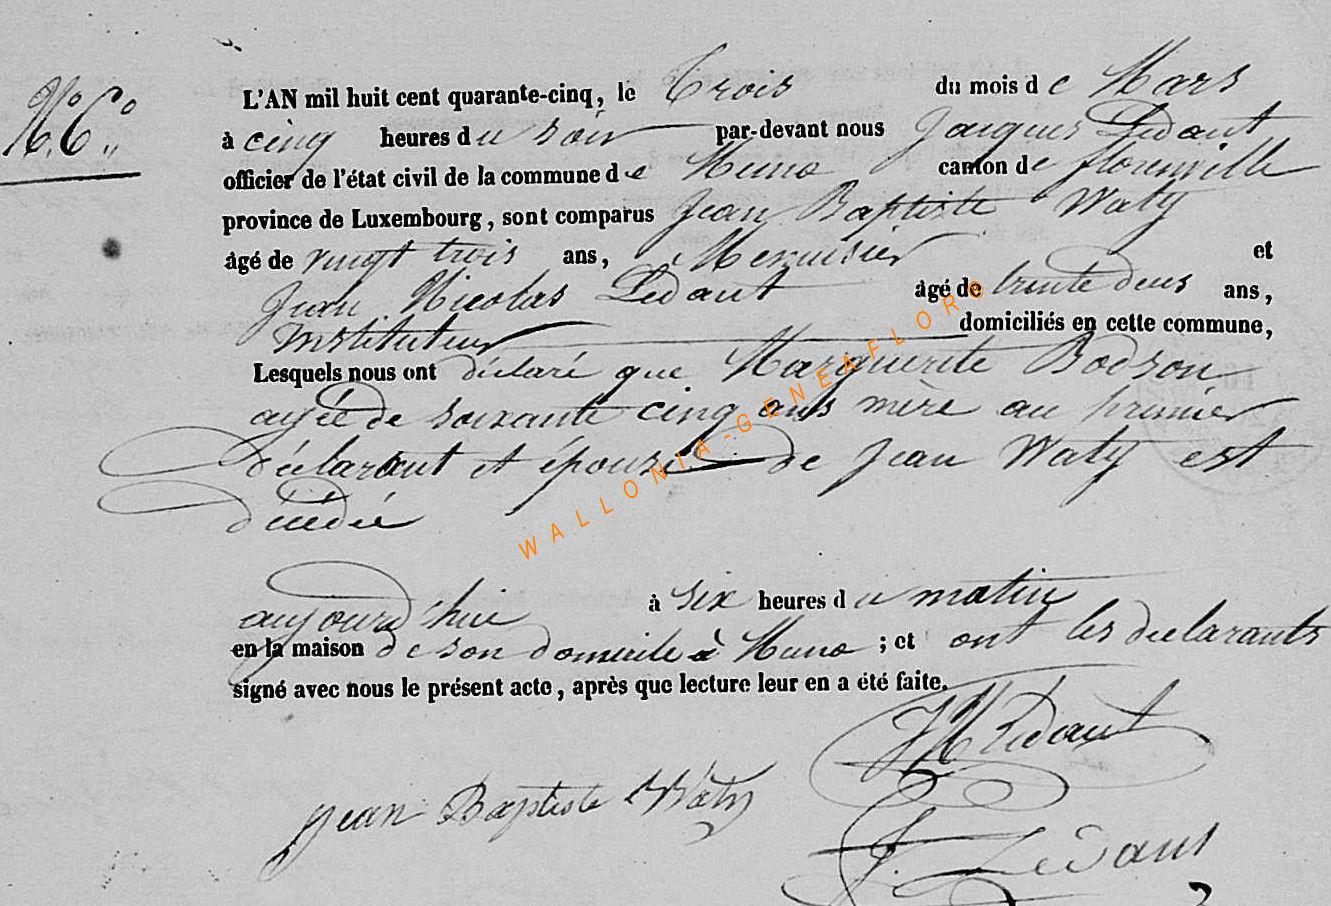 N.° 6.
L'AN mil huit cent quarante-cinq, le Trois du mois de Mars
à cinq heures du soir par-devant nous Jacques Ledant
officier de l'état civil de la commune de Muno canton de florenville
province de Luxembourg, sont comparus Jean Baptiste Waty
âgé de vingt trois ans, Menuisier et
Jean Nicolas Ledant âgé de trente deux ans,
Instituteur domiciliés en cette commune,
Lesquels nous ont déclaré que Marguerite Bodson
agée de soixante cinq ans mère au premier
déclarant et épouse de Jean Waty est
décédée
aujourd'hui à six heures du matin
en la maison de son domicile à Muno ; et ont les déclarants
signé avec nous le présent acte, après que lecture leur en a été faite.
JN Ledant
Jean Baptiste Waty
J. Ledant
WALLONIA-GENEAFLOR®